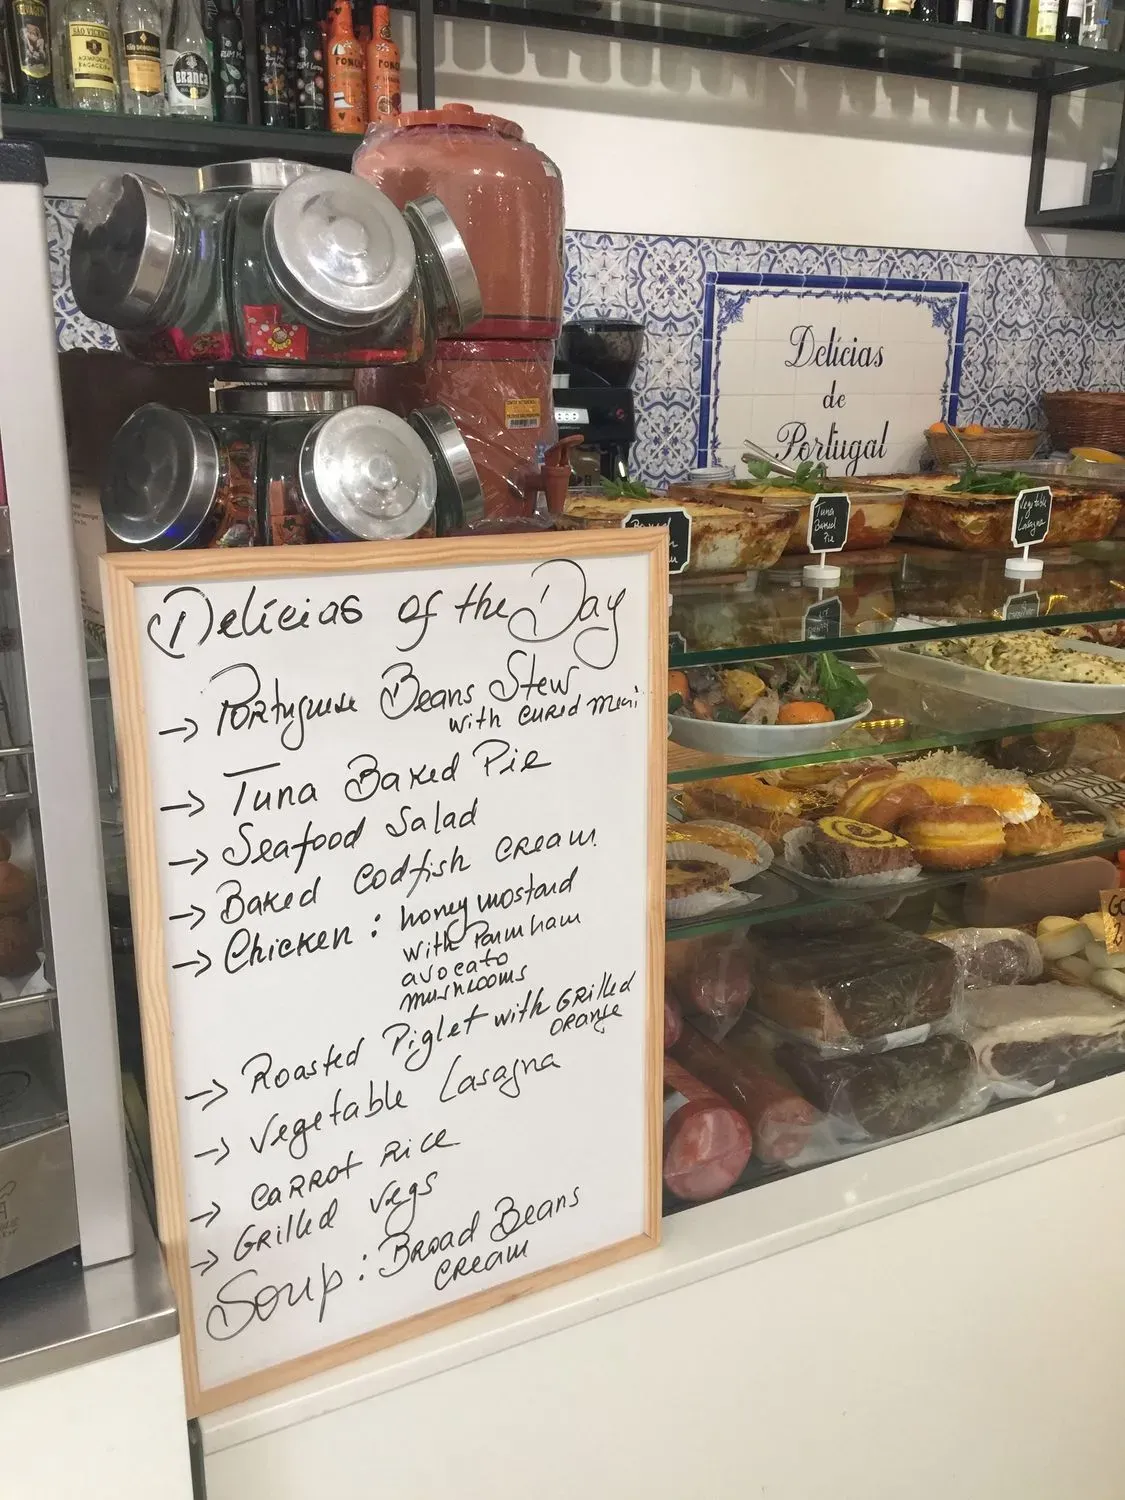 SÃO VICENTE
AGUARDENTE
BAGACEIRA
BRANCA
RUM
PONCHA
PONCHA
Delícias
de
Portugal
Tuna
Baked
Pie
Vegetable
Lasagna
Delícias of the Day
→ Portuguese Beans Stew
with cured meat
→ Tuna Baked Pie
→ Seafood Salad
→ Baked Codfish cream
→ Chicken: honey mostard
with Parmham
avocato
mushrooms
→ Roasted Piglet with Grilled
orange
→ Vegetable Lasagna
→ Carrot Rice
→ Grilled Vegs
Soup: Broad Beans
cream